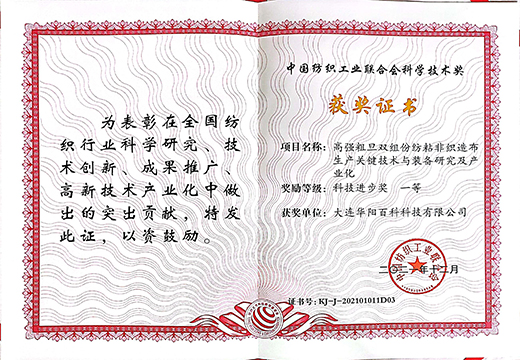 为表彰在全国纺
织行业科学研究、技
术创新、成果推广、
高新技术产业化中做
出的突出贡献，特发
此证，以资鼓励。
中国纺织工业联合会科学技术奖
获奖证书
项目名称：高强粗旦双组份纺粘非织造布
生产关键技术与装备研究及产
业化
奖励等级：科技进步奖 一等
获奖单位：大连华阳百科科技有限公司
中国纺织工业联合会
二〇二一年十二月
证书号：KJ-J-202101011D03